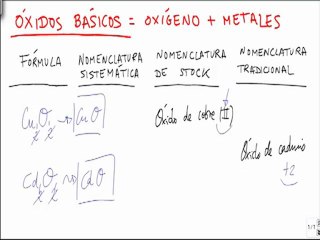 ÓXIDOS BÁSICOS = OXÍGENO + METALES
FÓRMULA
NOMENCLATURA SISTEMÁTICA
NOMENCLATURA DE STOCK
NOMENCLATURA TRADICIONAL
Cu₂O₂ → CuO
Óxido de cobre (II)
Óxido de cadmio
+2
Cd₂O₂ → CdO